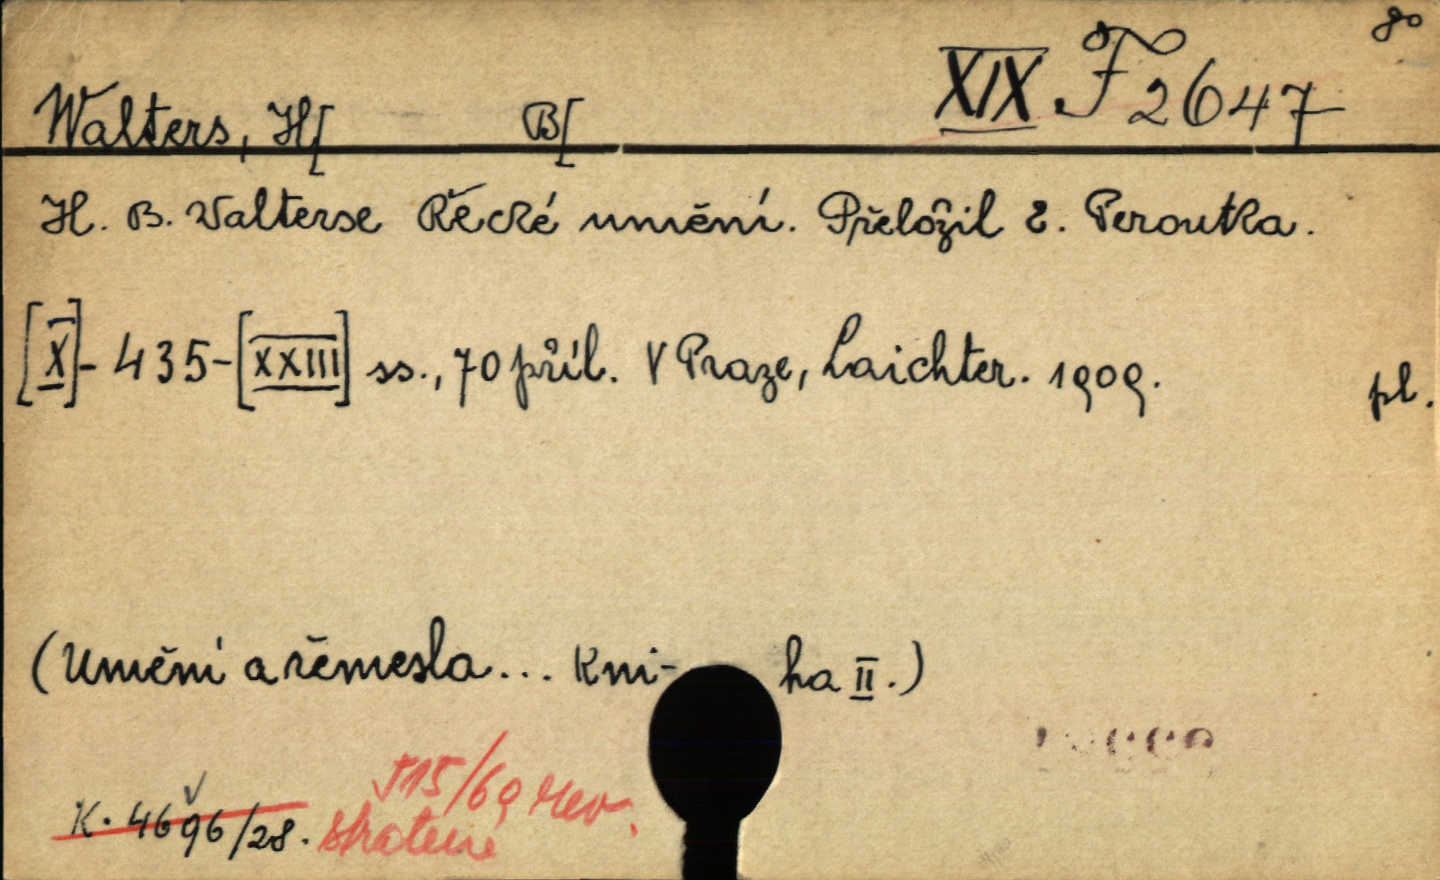 8o
XIX F 2647
Walters, H[ B[
H. B. Walterse Řecké umění. Přeložil E. Peroutka.
[X]-435-[XXIII] ss., 70 příl. V Praze, Laichter. 1909.
pl.
(Umění a řemesla... Kni- ha II.)
515/69 rev.
K. 4696/28. stratené